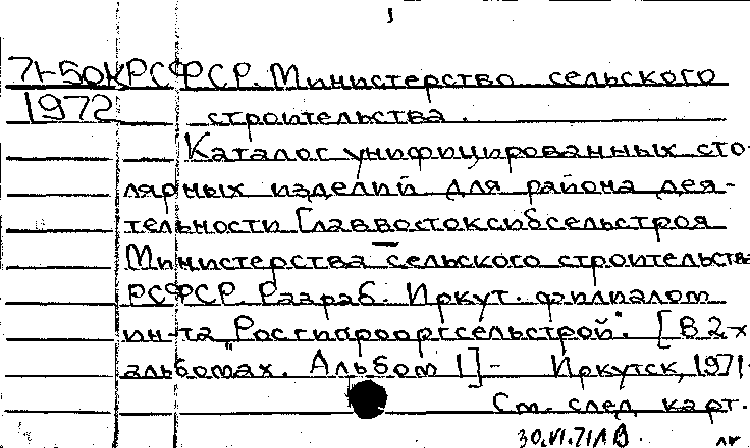 71-50К РСФСР. Министерство сельского
1972 строительства.
Каталог унифицированных сто-
лярных изделий для района дея-
тельности Главвостоксибсельстроя
Министерства сельского строительства
РСФСР. Разраб. Иркут. филиалом
ин-та "Росгипрооргсельстрой". [В 2-х
альбомах. Альбом 1] - Иркутск, 1971-
См. след. карт.
30.VI.71